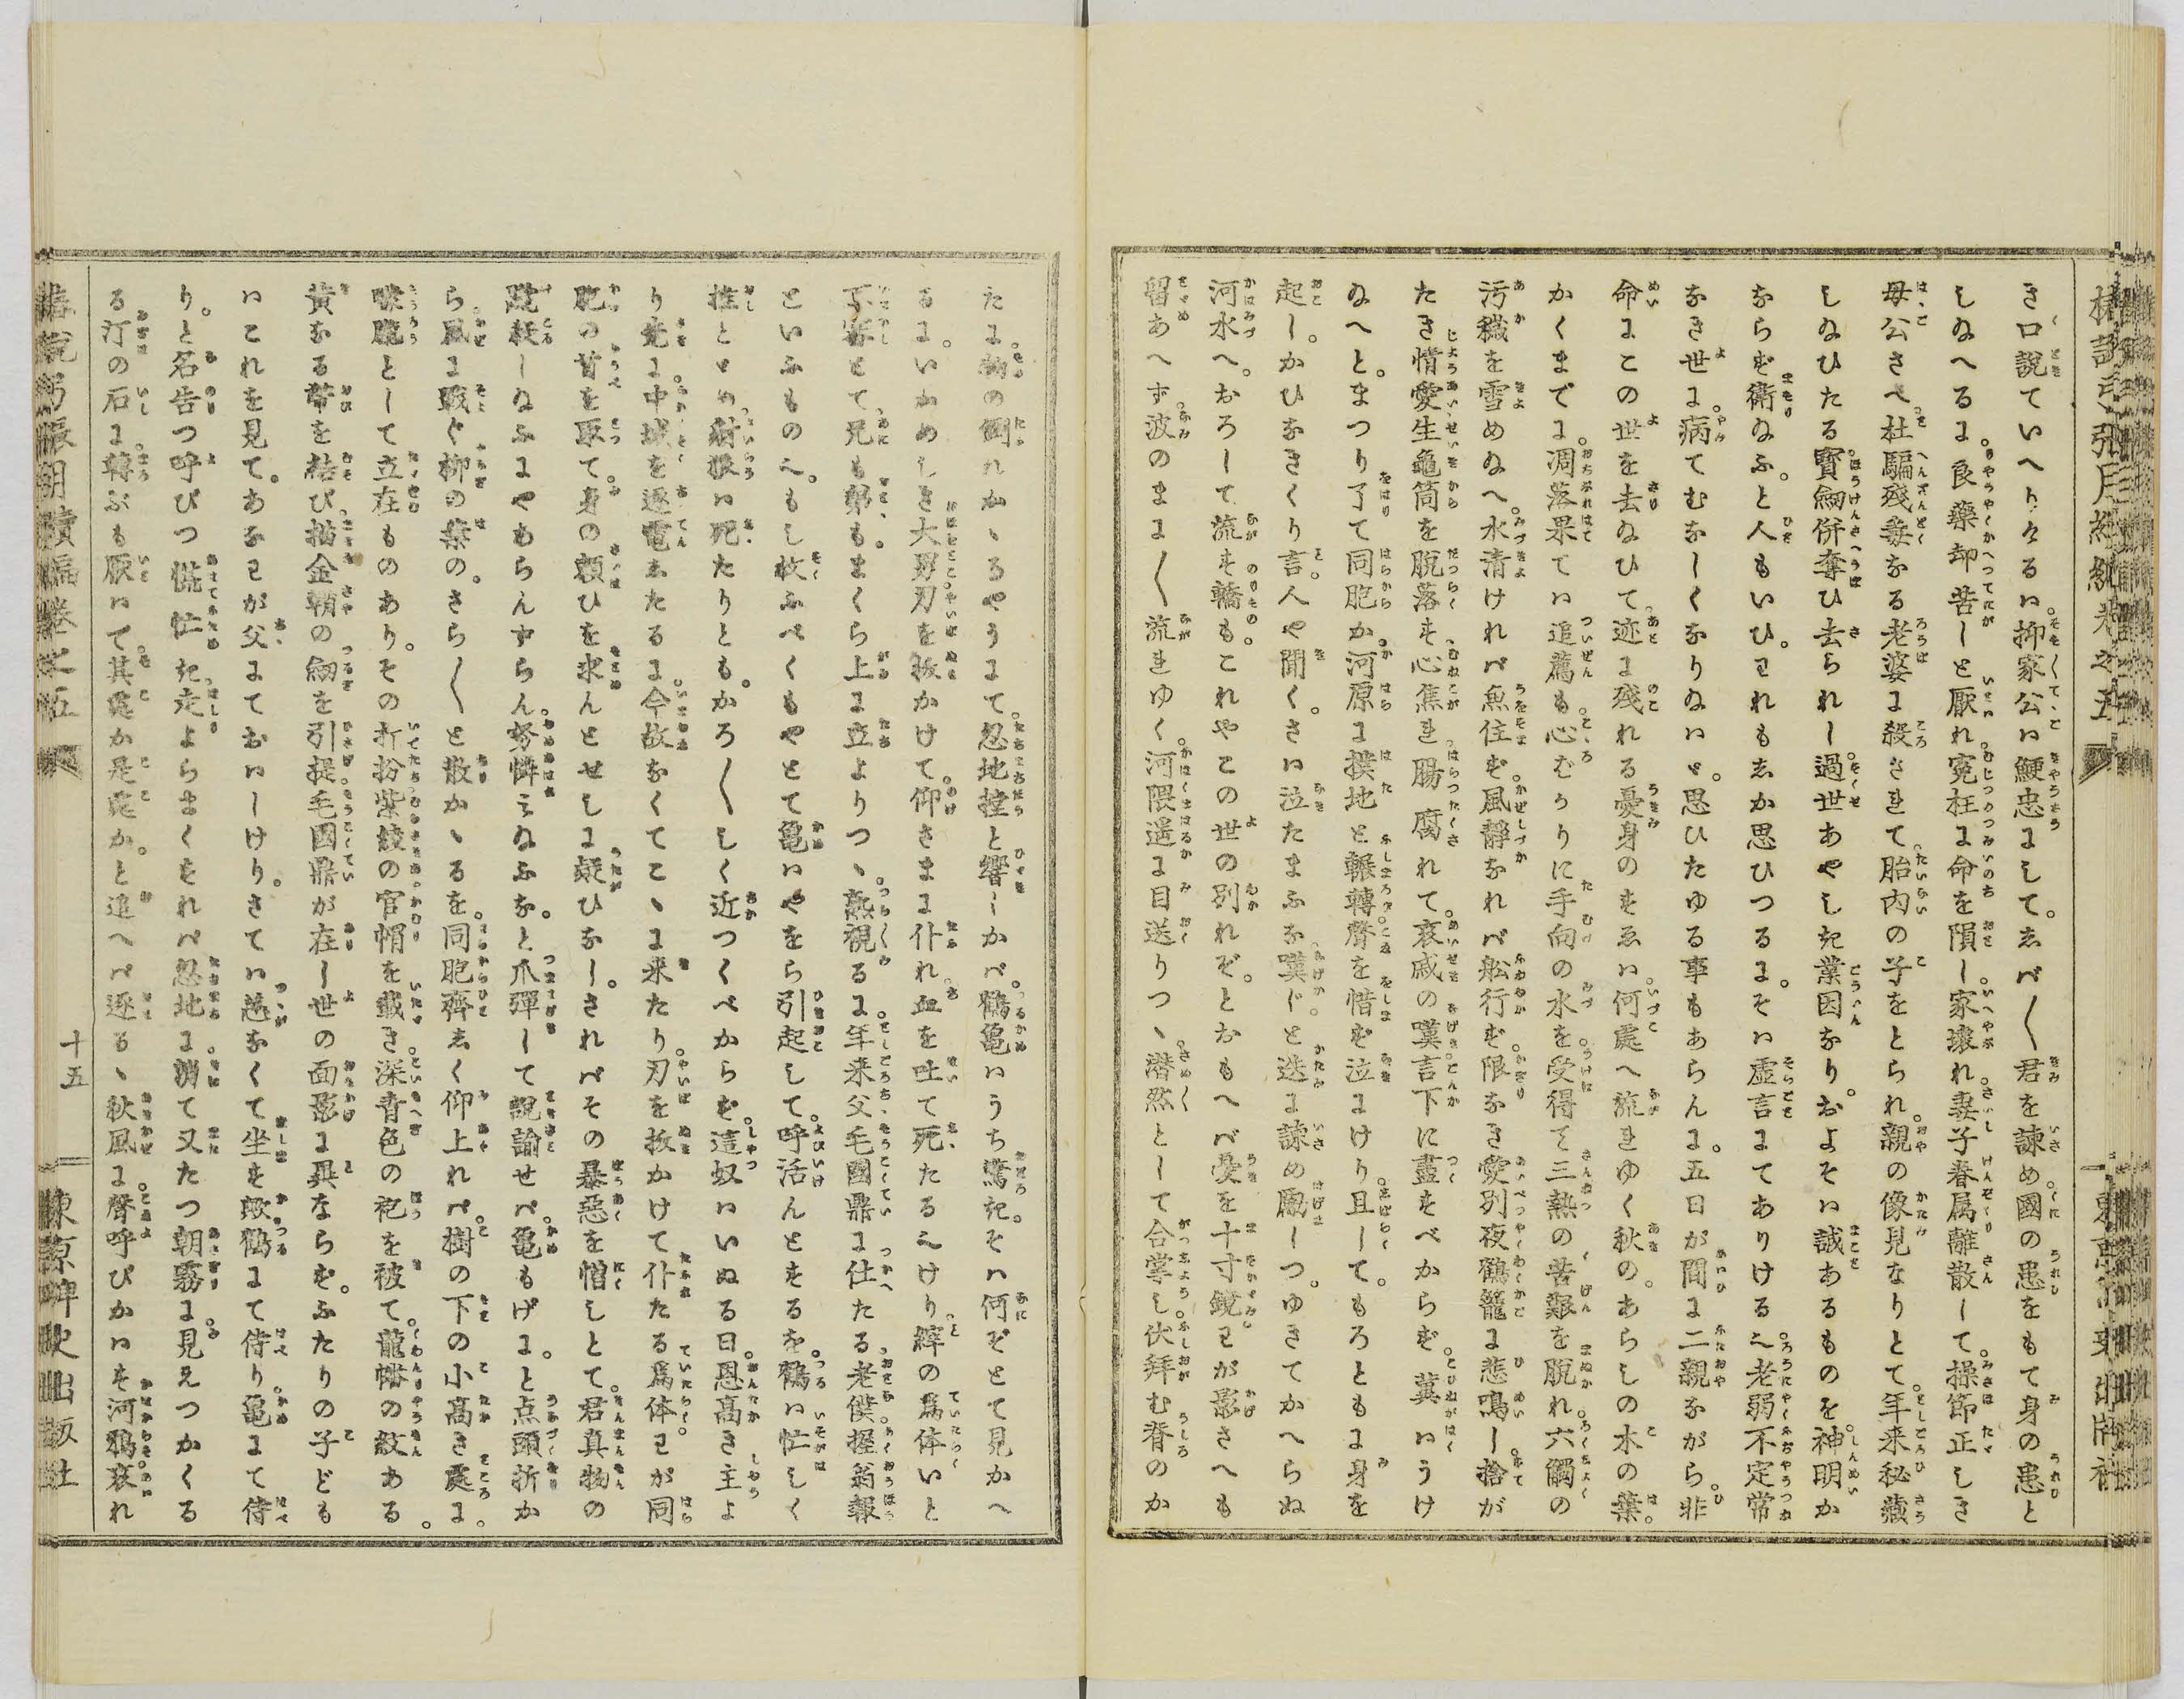 き口說ていへりけるは抑家公は鯁忠にして。しば〳〵君を諫め國の患をもて身の患と
しぬへるに。良藥却苦しと厭れ寃枉に命を隕し家壞れ妻子眷属離散して。操節正しき
母公さへ杜騙殘毒なる老婆に殺されて胎内の子をとられ。親の像見なりとて年来秘藏
しぬひたる寶劔併奪ひ去られし過世あやしき業因なり。およそは誠あるものを神明か
ならず衛ぬふ。と人もいひ。われもしか思ひつるに。そは虚言にてありける也老弱不定常
なき世に病てむなしくなりぬはゞ。思ひたゆる事もあらんに。五日が間に二親ながら。非
命にこの世を去ぬひて迹に殘れる憂身のすゑは何處へ流れゆく秋の。あらしの木の葉。
かくまでに。凋落果ては追薦も心ばかりに手向の水を。受得て三熱の苦艱を脱れ六觸の
汚穢を雪めぬへ。水清ければ魚住ず。風靜なれば舩行ず。限なき愛別夜鶴籠に悲鳴し捨が
たき情愛生龜筒を脱落す心焦れ腸腐れて。哀戚の嘆言下に盡すべからず。冀はうけ
ぬへと。まつり了て同胞か。河原に撲地と輾轉聲を惜ず泣にけり且して。もろともに身を
起し。かひなきくり言。人や聞く。さは泣たまふな嘆ぞ。と迭に諫め勵しつ。ゆきてかへらぬ
河水へ。おろして流す轎も。これやこの世の別れぞ。とおもへば憂を十寸鏡。わが影さへも
留あへず波のまに〳〵流れゆく河隈遥に目送りつゝ潜然として合掌し伏拜む脊のか
たに物の倒れかゝるやうにて忽地撑と響しかば。鶴龜はうち驚き。そは何ぞとて見かへ
るに。いかめしき大男刃を拔かけて。仰さまに仆れ血を吐て死たる也けり縡の爲体いと
不審とて兄も弟も。まくら上に立よりつゝ熟視るに年来父毛國鼎に仕たる老僕握翁報
といふもの也。もし救ふべくもやとて龜はやをら引起して。呼活んとするを。鶴は忙しく
推とゞめ豺狼は死たりとも。かろ〳〵しく近つくべからず這奴はいぬる日。恩高き主よ
り先に。中城を逐電したるに今故なくてこゝに来たり刃を拔かけて仆たる爲体。わが同
胞の首を取て。身の賴ひを求んとせしに疑ひなし。さればその暴惡を憎しとて。君真物の
蹴殺しぬふにやあらんずらん。努憐みぬふな。と爪彈して說諭せば。龜もげに。と点頭折か
ら風に戰ぐ柳の葉の。さら〳〵と散かゝるを。同胞齊しく仰上れば。樹の下の小高き處に。
朦朧として立在ものあり。その打扮紫綾の官帽を戴き深青色の袍を被て。龍幡の紋ある。
黄なる帶を結び描金鞘の劔を引提毛國鼎が在し世の面影に異ならず。ふたりの子ども
はこれを見て。あなわが父にておはしけり。さては恙なくて坐す歟鶴にて侍り龜にて侍
り。と名告つ呼びつ慌忙き走よらまくすれば忽地に滅て又たつ朝霧に見えつかくる
る汀の石に轉ぶも厭はて其處か是處か。と追へば逐るゝ秋風に聲呼びかはす河鴉哀れ
椿說弓張月續編卷之五
十五
東京稗史出版社